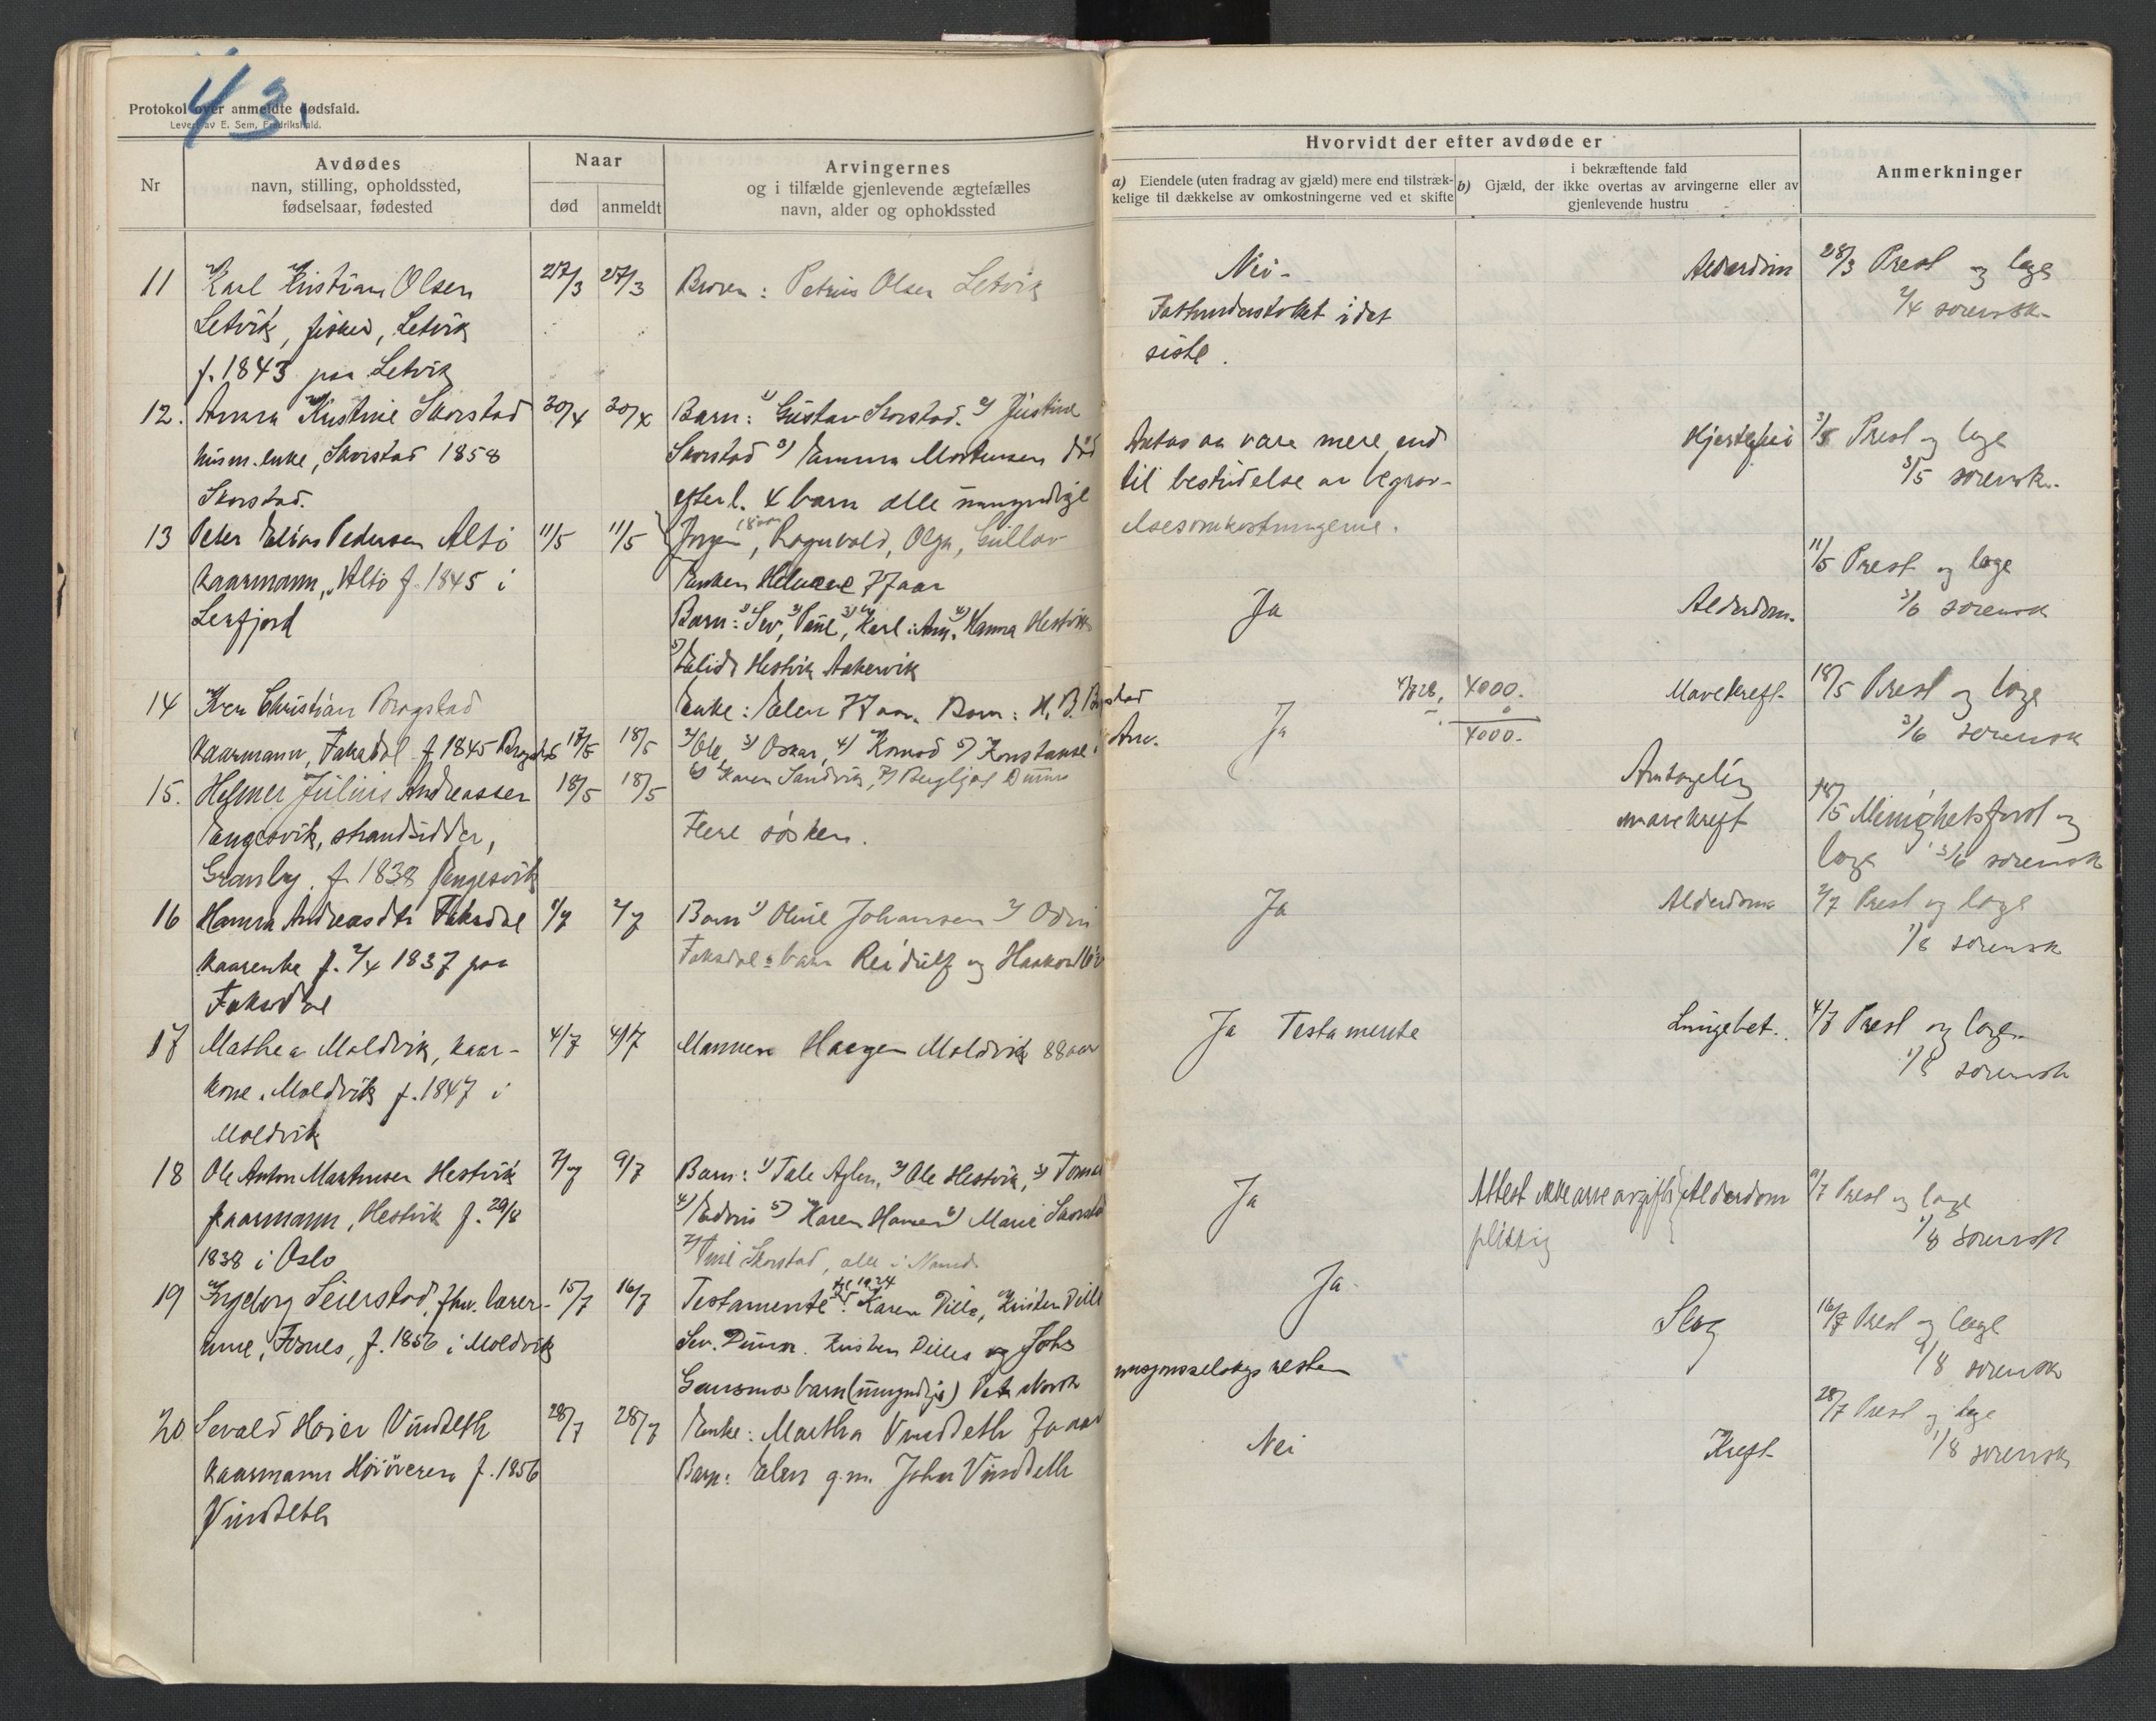 43.
Protokol over anmeldte dødsfald.
Levert av E. Sem, Fredrikshald.
Nr
Avdødes
navn, stilling, opholdssted,
fødselsaar, fødested
Naar
død
anmeldt
Arvingernes
og i tilfælde gjenlevende ægtefælles
navn, alder og opholdssted
Hvorvidt der efter avdøde er
a) Eiendele (uten fradrag av gjæld) mere end tilstræk-
kelige til dækkelse av omkostningerne ved et skifte
i bekræftende fald
b) Gjæld, der ikke overtas av arvingerne eller av
gjenlevende hustru
Anmerkninger
11 Karl Kristian Olsen 27/3 27/3 Broren: Petrus Olsen Letvik Nei- Alderdom 28/3 Prest og læge
Letvik, fisker, Letvik Fattigunderstøttet i det 2/4 sorensk.
f. 1843 paa Letvik siste.
12. Anna Kristine Skorstad 30/4 30/4 Barn: 1) Gustav Skorstad. 2) Justine
husm. enke, Skorstad 1858 Skorstad 3) Emma Mortensen død Antas aa være mere end Hjertefeil 3/5 Prest og læge
Skorstad. efterl. 4 barn alle umyndige til bestridelse av begrav- 3/5 sorensk.
13 Peter Elias Pedersen Altø 11/5 11/5 Jørgen 18 aar, Ragnvald, Olga, Gullav elsesomkostningerne.
kaarmann, Altø f. 1845 i Enken Helmine 77 aar 11/5 Prest og læge
Lerfjord Barn: 1) Sev, 2) Paul, 3) Karl i Am. 4) Hanna Hestvik Ja Alderdom. 3/6 sorensk
5) Elida Hestvik Aakervik
14 Iver Christian Brogstad Enke: Elen 77 aar. Barn: H. B. Brogstad 4000. Mavekreft. 18/5 Prest og læge
kaarmann, Faksdal f. 1845 Brogstad 17/5 18/5 2) Ole, 3) Oskar, 4) Konrad 5) Konstanse i Am. Ja 4000. 3/6 sorensk
6) Karen Sandvik, 7) Bergljot Duun
15. Helmer Julius Andreassen 18/5 18/5 Antagelig
Engesvik, strandsidder, Flere søsken. mavekreft 18/5 Menighetsforst og
Granby. f. 1838 Engesvik læge 3/6 sorensk
16 Hanna Andreasdtr Faksdal 1/7 2/7 Barn 1) Oline Johansen 2) Odin Ja Alderdom 2/7 Prest og læge
kaarenke f. 2/4 1837 paa Faksdal s barn Reidulf og Haakon 1/8 sorensk
Faksdal
17 Mathea Moldvik, kaar- 4/7 4/7 Mannen Haagen Moldvik 88 aar Ja Testamente Lungebet. 4/7 Prest og læge
kone, Moldvik f. 1847 i 1/8 sorensk
Moldvik
18 Ole Anton Martinsen Hestvik 7/7 9/7 Barn: 1) Tale Aglen, 2) Ole Hestvik, 3) Ja Attest ikke arveavgifts Alderdom 9/7 Prest og læge
kaarmann, Hestvik f. 29/8 4) Edvin 5) Karen Hansen 6) Marie Skorstad pliktig 1/8 sorensk
1838 i Oslo 7) Skorstad, alle i Namd.
19 Ingeborg Seierstad, fhv. lærer- 15/7 16/7 Testamente 1924 Karen Dille, Kristen Dille Ja- Slag 16/7 Prest og læge
inne, Fosnes, f. 1856 i Moldvik Sev. Duun. Kristen Dilles og Johs 1/8 sorensk
Gansmos barn (umyndige) Det Norsk misjonsselskap resten
20 Sevald Høier Vindseth 28/7 28/7 Enke: Martha Vindseth aar Nei Kreft 28/7 Prest og læge
kaarmann Høiøveren f. 1856 Barn: Elen g.m. John Vindseth 1/8 sorensk
Vindseth